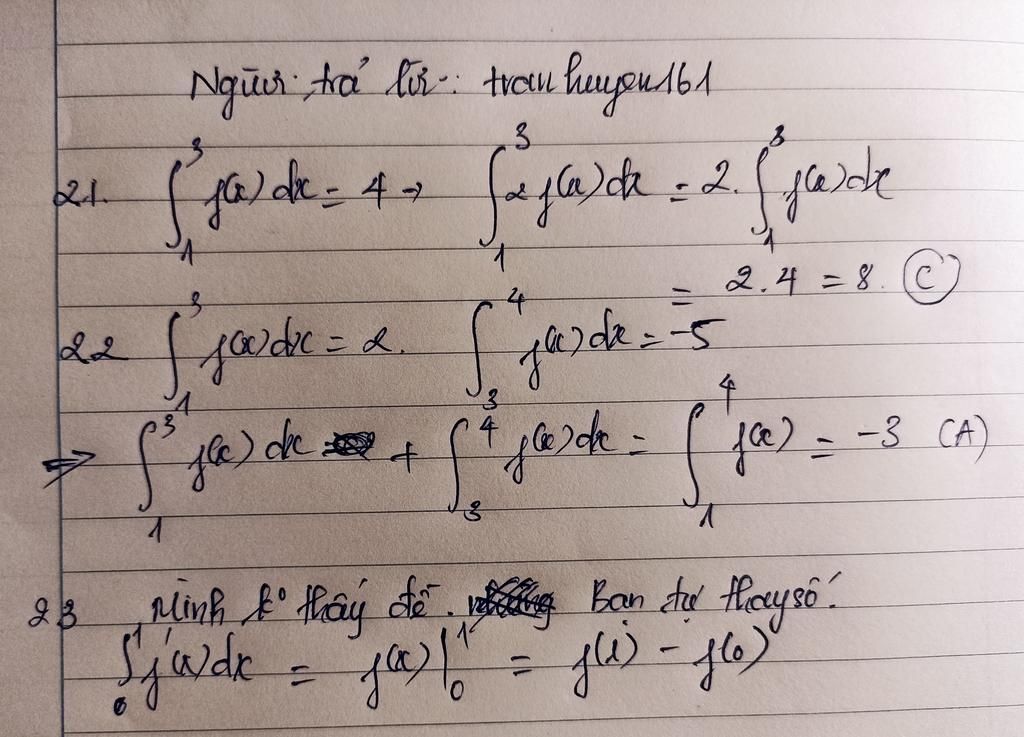 Người trả lời: tranhuyen161
21. ∫₁³ f(x) dx = 4 → ∫₁³ 2 f(x) dx = 2. ∫₁³ f(x) dx
= 2.4 = 8. (C)
22 ∫₁³ f(x) dx = 2. ∫₃⁴ f(x) dx = -5
⇒ ∫₁³ f(x) dx + ∫₃⁴ f(x) dx = ∫₁⁴ f(x) = -3 (A)
23 Mình k° thấy đề. Bạn tự thay số.
∫₀¹ f'(x) dx = f(x) |₀¹ = f(1) - f(0)